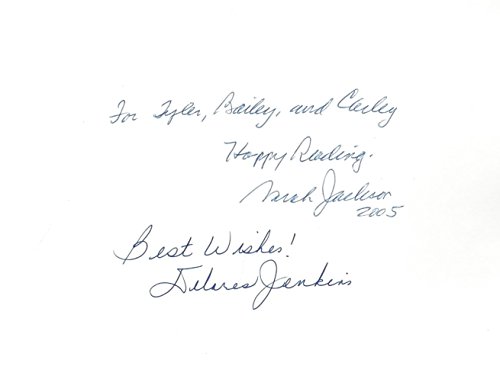 For Tyler, Bailey, and Carley
Happy Reading.
Sarah Jackson
2005
Best Wishes!
Delores Jenkins